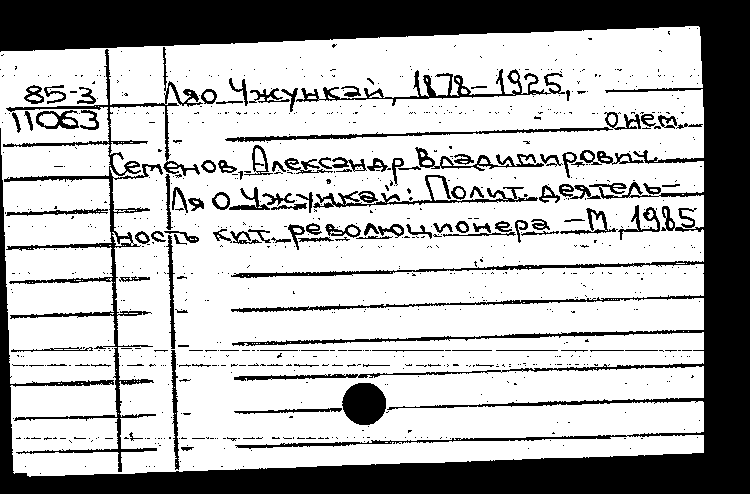 85-3
11063
Ляо Чжункай, 1878-1925,
о нем.
Семенов, Александр Владимирович.
Ляо Чжункай: Полит. деятель-
ность кит. революционера -М, 1985